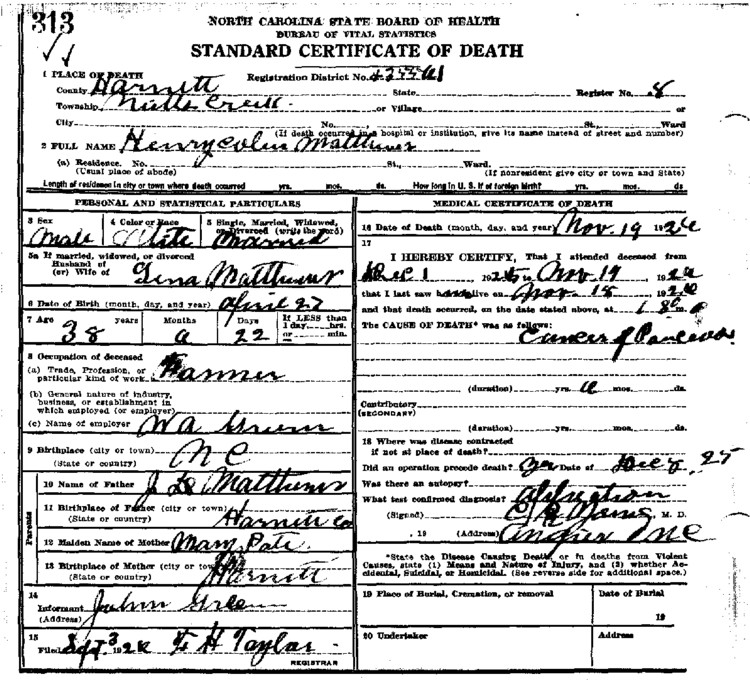 313
NORTH CAROLINA STATE BOARD OF HEALTH
BUREAU OF VITAL STATISTICS
STANDARD CERTIFICATE OF DEATH
1 PLACE OF DEATH
Registration District No.
County Harnett State Register No. 8
Township Creek or Village or
City No. St., Ward
(If death occurred in a hospital or institution, give its name instead of street and number)
2 FULL NAME Henry Matthews
(a) Residence. No. St., Ward.
(Usual place of abode) (If nonresident give city or town and State)
Length of residence in city or town where death occurred yrs. mos. ds. How long in U. S. if of foreign birth? yrs. mos. ds.
PERSONAL AND STATISTICAL PARTICULARS
3 Sex 4 Color or Race 5 Single, Married, Widowed, or Divorced (write the word)
Male White Married
5a If married, widowed, or divorced
Husband of
(or) Wife of Matthews
6 Date of Birth (month, day, and year) April 27
7 Age years Months Days If LESS than 1 day hrs. or min.
38 22
8 Occupation of deceased
(a) Trade, Profession, or particular kind of work Farmer
(b) General nature of industry, business, or establishment in which employed (or employer)
(c) Name of employer W A
9 Birthplace (city or town)
(State or country) N C
Parents
10 Name of Father J Matthews
11 Birthplace of Father (city or town)
(State or country) Harnett Co
12 Maiden Name of Mother Mary Pate
13 Birthplace of Mother (city or town)
(State or country) Harnett
14
Informant John Green
(Address)
15
Filed Sept 3 192 H Taylor
REGISTRAR
MEDICAL CERTIFICATE OF DEATH
16 Date of Death (month, day, and year) Nov. 19 192
17
I HEREBY CERTIFY, That I attended deceased from
Dec 1 192 to Nov 19 192
that I last saw h alive on Nov 18 192
and that death occurred, on the date stated above, at m.
The CAUSE OF DEATH* was as follows:
Cancer of Pancreas
(duration) yrs. mos. ds.
Contributory
(SECONDARY)
(duration) yrs. mos. ds.
18 Where was disease contracted
if not at place of death?
Did an operation precede death? Yes Date of Dec 25
Was there an autopsy?
What test confirmed diagnosis?
(Signed) M. D.
, 19 (Address) Angier N C
*State the Disease Causing Death, or in deaths from Violent
Causes, state (1) Means and Nature of Injury, and (2) whether Accidental, Suicidal, or Homicidal. (See reverse side for additional space.)
19 Place of Burial, Cremation, or removal Date of Burial
19
20 Undertaker Address